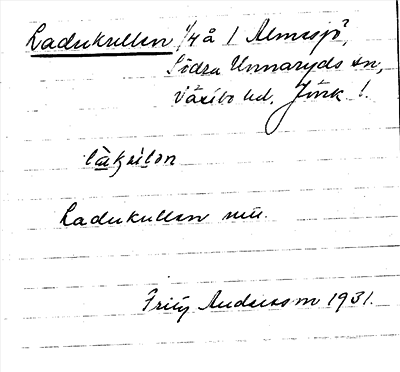 Ladukullen 1/4 å 1 Älmesjö,
Södra Unnaryds sn,
Västbo hd, Jönk. l.
Ladukullen mu.
Fritz Andersson 1931.